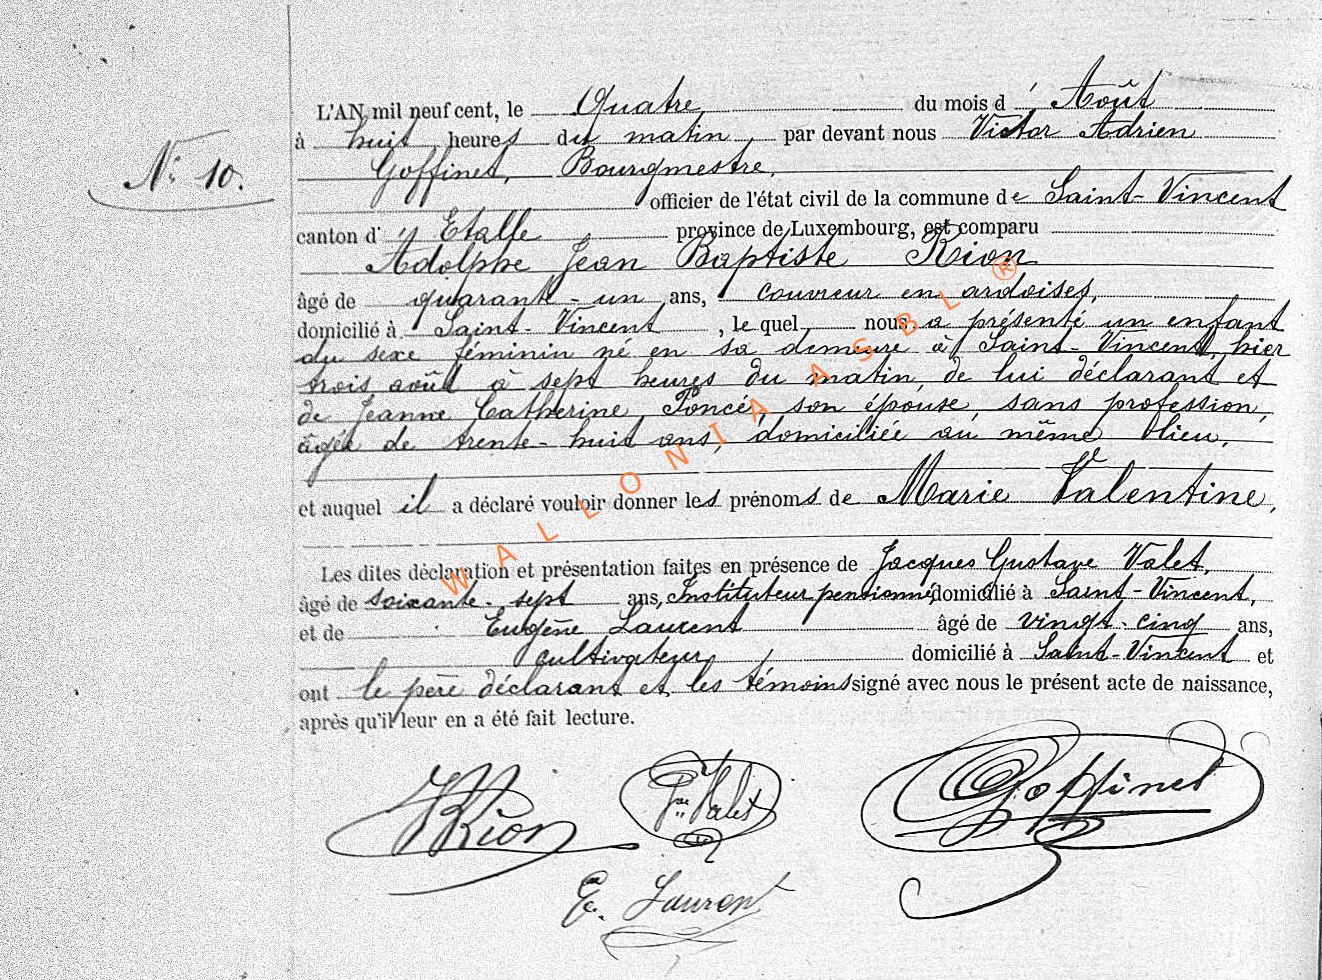 L'AN mil neuf cent, le Quatre du mois d' Août
N° 10.
à huit heures du matin par devant nous Victor Adrien
Goffinet, Bourgmestre,
officier de l'état civil de la commune de Saint-Vincent
canton d' Etalle province de Luxembourg, est comparu
Adolphe Jean Baptiste Rion
âgé de quarante-un ans, couvreur en ardoises,
domicilié à Saint-Vincent, lequel nous a présenté un enfant
du sexe féminin né en sa demeure à Saint-Vincent, hier
trois août à sept heures du matin, de lui déclarant et
de Jeanne Catherine Poncé, son épouse, sans profession,
âgée de trente-huit ans, domiciliée au même lieu,
et auquel il a déclaré vouloir donner les prénoms de Marie Valentine,
Les dites déclaration et présentation faites en présence de Jacques Gustave Valet,
âgé de soixante-sept ans, Instituteur pensionné, domicilié à Saint-Vincent,
et de Eugène Laurent âgé de vingt-cinq ans,
cultivateur, domicilié à Saint-Vincent et
ont le père déclarant et les témoins signé avec nous le présent acte de naissance,
après qu'il leur en a été fait lecture.
Rion
Valet
Goffinet
E. Laurent
WALLONIA ASBL ®